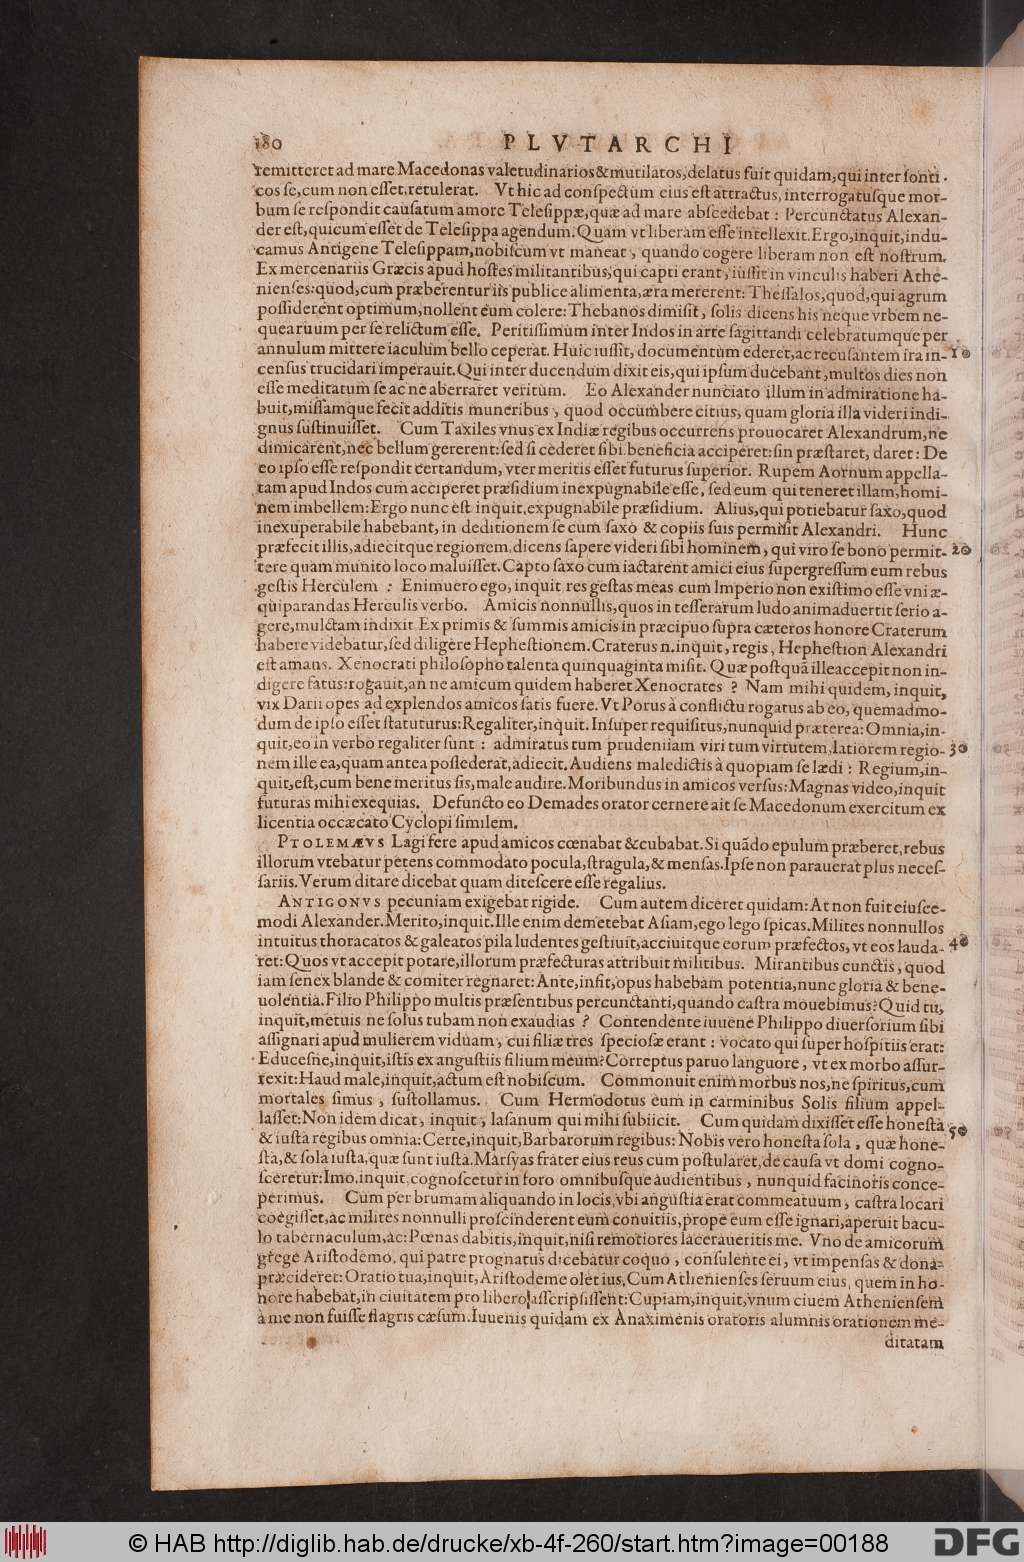 180 PLVTARCHI
remitteret ad mare Macedonas valetudinarios & mutilatos, delatus fuit quidam, qui inter sonti
cos se, cum non esset, retulerat. Vt hic ad conspectum eius est attractus, interrogatusque mor-
bum se respondit causatum amore Telesippæ, quæ ad mare abscedebat : Percunctatus Alexan-
der est, quicum esset de Telesippa agendum. Quam vt liberam esse intellexit. Ergo, inquit, indu-
camus Antigene Telesippam, nobiscum vt maneat, quando cogere liberam non est nostrum.
Ex mercenariis Græcis apud hostes militantibus, qui capti erant, iussit in vinculis haberi Athe-
nienses: quod, cum præberentur iis publice alimenta, æra mererent: Thessalos, quod, qui agrum
possiderent optimum, nollent eum colere: Thebanos dimisit, solis dicens his neque vrbem ne-
que aruum per se relictum esse. Peritissimum inter Indos in arte sagittandi celebratumque per
annulum mittere iaculum bello ceperat. Huic iussit, documentum ederet, ac recusantem ira in- 10
census trucidari imperauit. Qui inter ducendum dixit eis, qui ipsum ducebant, multos dies non
esse meditatum se ac ne aberraret veritum. Eo Alexander nunciato illum in admiratione ha-
buit, missamque fecit additis muneribus, quod occumbere citius, quam gloria illa videri indi-
gnus sustinuisset. Cum Taxiles vnus ex Indiæ regibus occurrens prouocaret Alexandrum, ne
dimicarent, nec bellum gererent: sed si cederet sibi beneficia acciperet: sin præstaret, daret: De
eo ipso esse respondit certandum, vter meritis esset futurus superior. Rupem Aornum appella-
tam apud Indos cum acciperet præsidium inexpugnabile esse, sed eum qui teneret illam, homi-
nem imbellem: Ergo nunc est inquit, expugnabile præsidium. Alius, qui potiebatur saxo, quod
inexuperabile habebant, in deditionem se cum saxo & copiis suis permisit Alexandri. Hunc
præfecit illis, adiecitque regionem, dicens sapere videri sibi hominem, qui viro se bono permit- 20
tere quam munito loco maluisset. Capto saxo cum iactarent amici eius supergressum eum rebus
gestis Herculem : Enimuero ego, inquit res gestas meas cum Imperio non existimo esse vni æ-
quiparandas Herculis verbo. Amicis nonnullis, quos in tesserarum ludo animaduertit serio a-
gere, mulctam indixit Ex primis & summis amicis in præcipuo supra cæteros honore Craterum
habere videbatur, sed diligere Hephestionem. Craterus n. inquit, regis, Hephestion Alexandri
est amans. Xenocrati philosopho talenta quinquaginta misit. Quæ postquã ille accepit non in-
digere fatus: rogauit, an ne amicum quidem haberet Xenocrates ? Nam mihi quidem, inquit,
vix Darii opes ad explendos amicos satis fuere. Vt Porus à conflictu rogatus ab eo, quemadmo-
dum de ipso esset statuturus: Regaliter, inquit. Insuper requisitus, nunquid præterea: Omnia, in-
quit, eo in verbo regaliter sunt : admiratus tum prudentiam viri tum virtutem, latiorem regio- 30
nem ille ea, quam antea possederat, adiecit. Audiens maledictis à quopiam se lædi : Regium, in-
quit, est, cum bene meritus sis, male audire. Moribundus in amicos versus: Magnas video, inquit
futuras mihi exequias. Defuncto eo Demades orator cernere ait se Macedonum exercitum ex
licentia occæcato Cyclopi similem.
PTOLEMÆVS Lagi fere apud amicos cœnabat & cubabat. Si quãdo epulum præberet, rebus
illorum vtebatur petens commodato pocula, stragula, & mensas. Ipse non parauerat plus neces-
sariis. Verum ditare dicebat quam ditescere esse regalius.
ANTIGONVS pecuniam exigebat rigide. Cum autem diceret quidam: At non fuit eiusce-
modi Alexander. Merito, inquit. Ille enim demetebat Asiam, ego lego spicas. Milites nonnullos
intuitus thoracatos & galeatos pila ludentes gestiuit, acciuitque eorum præfectos, vt eos lauda- 40
ret: Quos vt accepit potare, illorum præfecturas attribuit militibus. Mirantibus cunctis, quod
iam senex blande & comiter regnaret: Ante, infit, opus habebam potentia, nunc gloria & bene-
uolentia. Filio Philippo multis præsentibus percunctanti, quando castra mouebimus? Quid tu,
inquit, metuis ne solus tubam non exaudias ? Contendente iuuene Philippo diuersorium sibi
assignari apud mulierem viduam, cui filiæ tres speciosæ erant : vocato qui super hospitiis erat:
Educesne, inquit, istis ex angustiis filium meum? Correptus paruo languore, vt ex morbo assur-
rexit: Haud male, inquit, actum est nobiscum. Commonuit enim morbus nos, ne spiritus, cum
mortales simus, sustollamus. Cum Hermodotus eum in carminibus Solis filium appel-
lasset: Non idem dicat, inquit, lasanum qui mihi subiicit. Cum quidam dixisset esse honesta
& iusta regibus omnia: Certe, inquit, Barbarorum regibus: Nobis vero honesta sola, quæ hone- 50
sta, & sola iusta, quæ sunt iusta. Marsyas frater eius reus cum postularet, de causa vt domi cogno-
sceretur: Imo, inquit, cognoscetur in foro omnibusque audientibus, nunquid facinoris conce-
perimus. Cum per brumam aliquando in locis, vbi angustia erat commeatuum, castra locari
coegisset, ac milites nonnulli proscinderent eum conuitiis, prope eum esse ignari, aperuit bacu-
lo tabernaculum, ac: Pœnas dabitis, inquit, nisi remotiores laceraueritis me. Vno de amicorum
grege Aristodemo, qui patre prognatus dicebatur coquo, consulente ei, vt impensas & dona
præcideret: Oratio tua, inquit, Aristodeme olet ius, Cum Athenienses seruum eius, quem in ho-
nore habebat, in ciuitatem pro libero asscripsissent: Cupiam, inquit, vnum ciuem Atheniensem
à me non fuisse flagris cæsum. Iuuenis quidam ex Anaximenis oratoris alumnis orationem me-
ditatam
© HAB http://diglib.hab.de/drucke/xb-4f-260/start.htm?image=00188 DFG